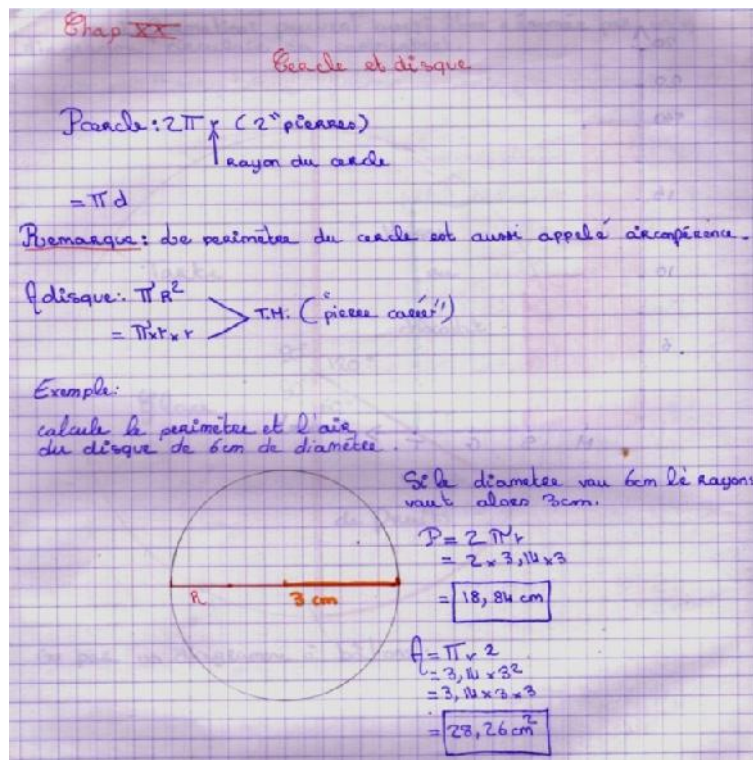 Chap XX
Cercle et disque
Pcercle: 2πr (2 "pierres)
rayon du cercle
= πd
Remarque: Le perimètre du cercle est aussi appelé circonférence.
A disque: πR²
= π×r×r
T.H: ("pierre carré")
Exemple:
calcule le perimètre et l'air
du disque de 6cm de diamétre.
Si le diametre vau 6cm lé rayons
vaut alors 3cm.
P = 2πr
= 2 × 3,14 × 3
= 18,84 cm
R
3 cm
A = πr2
= 3,14 × 3²
= 3,14 × 3 × 3
= 28,26 cm²